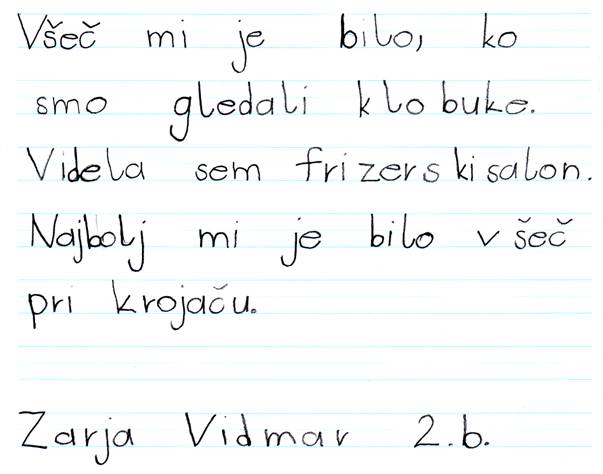 Všeč mi je bilo, ko
smo gledali klobuke.
Videla sem frizerski salon.
Najbolj mi je bilo všeč
pri krojaču.
Zarja Vidmar 2.b.